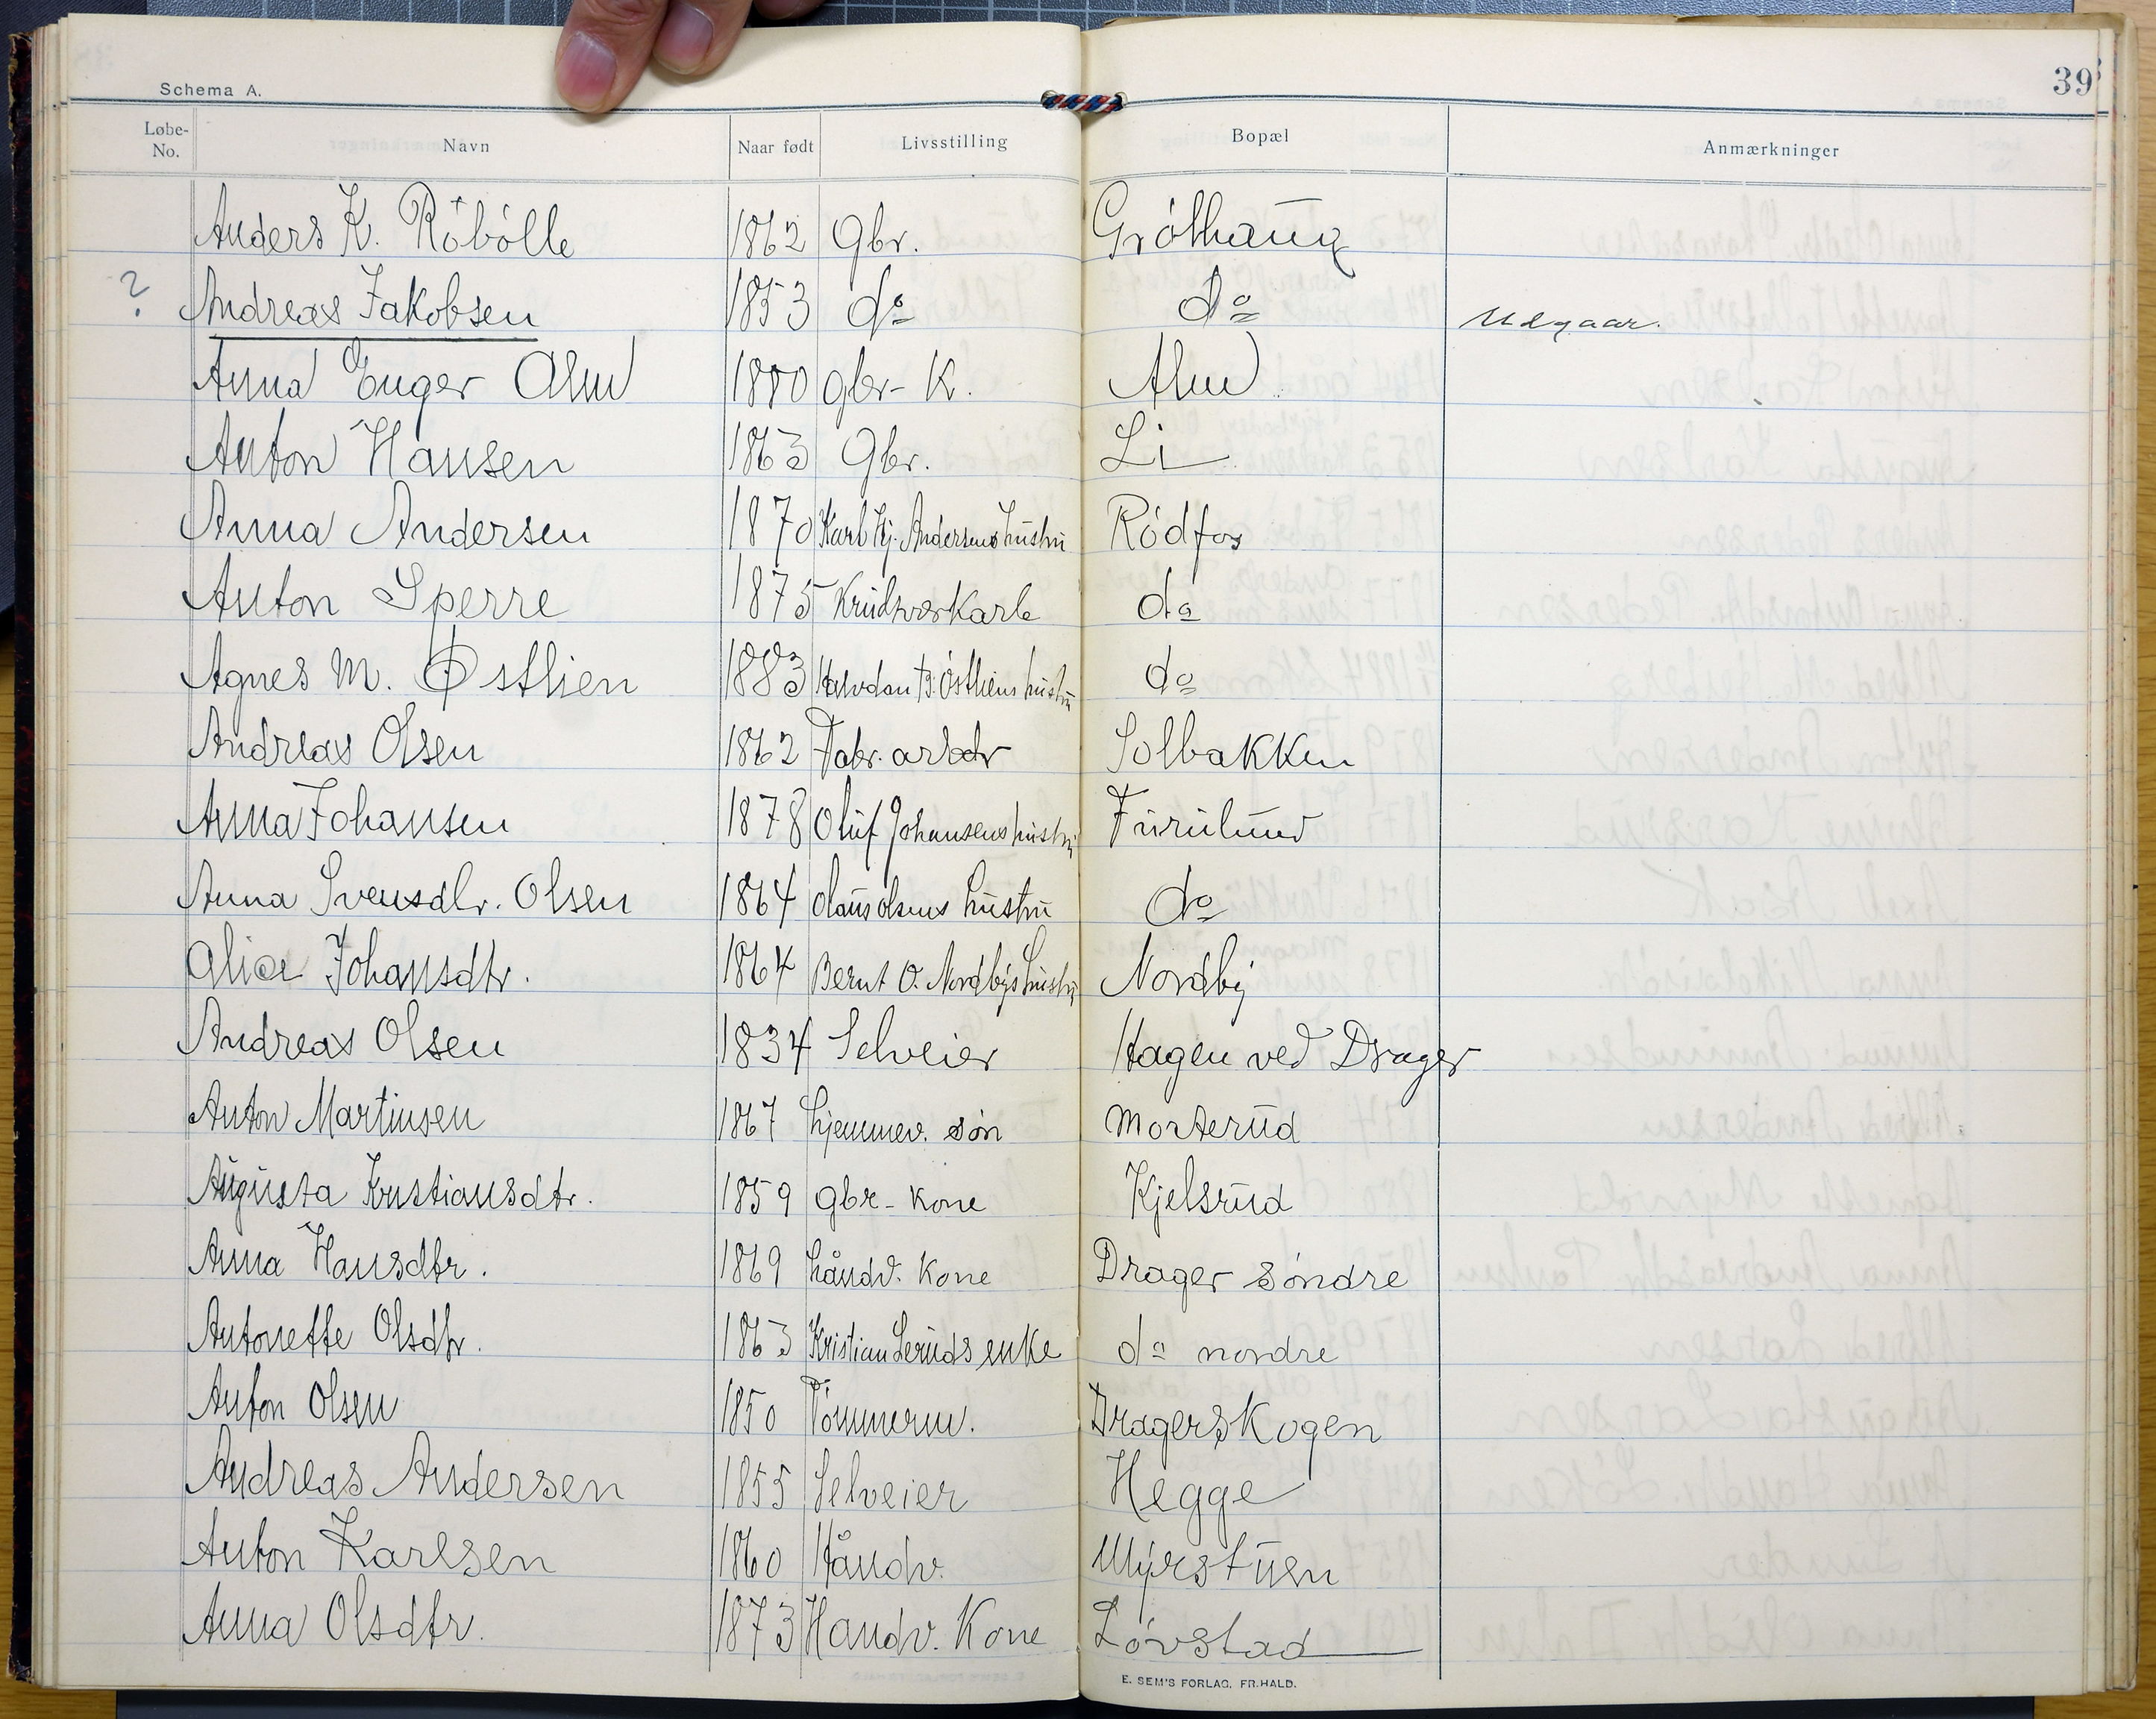 Schema A.
39
Løbe-No. Navn Naar født Livsstilling Bopæl Anmærkninger
Anders K. Röbölle 1862 Gbr. Gröthaug
? Andreas Jakobsen 1853 do do Udgaar.
Anna Enger Alm 1880 gbr- K. Alm
Anton Hansen 1863 Gbr. Li
Anna Andersen 1870 Karl Hj. Andersens hustru Rödfos
Anton Sperre 1875 Krudtverkarb do
Agnes M. Østlien 1883 Halvdan B. Östliens hustru do
Andreas Olsen 1862 Fabr. arbdr Solbakken
Anna Johansen 1878 Oluf Johansens hustru Furulund
Anna Svensdtr. Olsen 1864 Olaus Olsens hustru do
Alice Johansdtr. 1864 Bernt O. Nordbys hustru Nordby
Andreas Olsen 1834 Selveier Hagen ved Drager
Anton Martinsen 1867 hjemmev. sön Morterud
Augusta Kristiansdtr. 1859 gbr- kone Kjelsrud
Anna Hansdtr. 1869 håndv. kone Drager söndre
Antonette Olsdtr. 1863 Kristian Leruds enke do nordre
Anton Olsen 1850 Tömmerm. Dragerskogen
Andreas Andersen 1855 Selveier Hegge
Anton Karlsen 1860 Håndv. Myrstuen
Anna Olsdtr. 1873 Handv. Kone Lövstad
E. SEM'S FORLAG, FR.HALD.